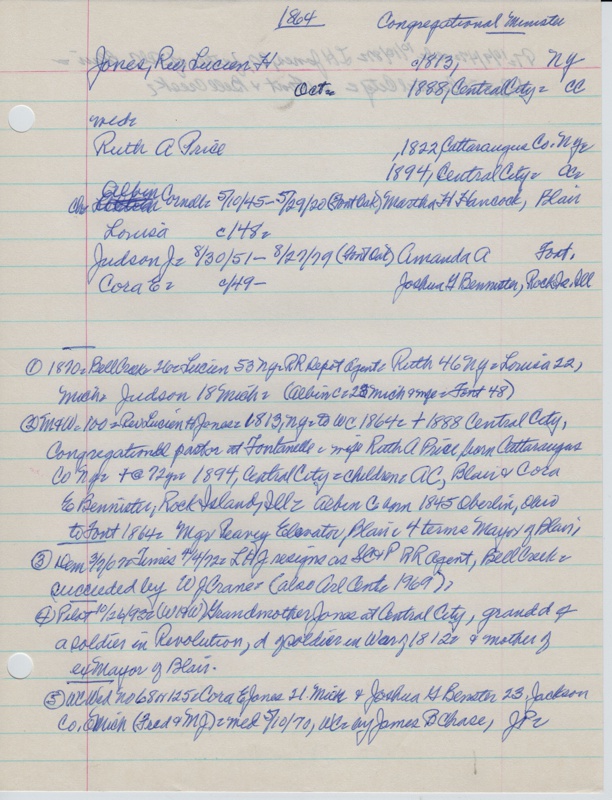 1864 Congregational Minister
Jones, Rev, Lucien H c1813, Ny
Oct= 1888, Central City= CC
wed=
Ruth A Price ,1822, Cattaraugus Co. Ny=
1894, Central City=
ch= Albin Cornell= 5/10/45-5/29/20 (Font Cal) Martha H Hancock, Blair
Louisa c/48=
Judson J= 8/30/51- 8/27/79 (Font Cal) Amanda A Font.
Cora E= c/49- Joshua G Bennister, Rock Is. Ill
① 1870= Bell Creek= 26= Lucien 53 Ny= RR Depot Agent= Ruth 46 Ny= Louisa 22,
Mich= Judson 18 Mich= (Albin c= 25 Mich Font 48)
② M&W= 100= Rev Lucien H Jones= 1813, Ny= to WC 1864= + 1888 Central City,
Congregational pastor at Fontanelle= wife Ruth A Price, born Cattaraugus
Co Ny= +@ 72y= 1894, Central City= children= AC, Blair & Cora
E Bennister, Rock Island, Ill= Albin C born 1845 Oberlin, Ohio
to Font 1864= Mgr Peavey Elevator, Blair= 4 terms Mayor of Blair,
③ Times 4/4/72= LHJ resigns as SC&P RR agent, Bell Creek=
succeeded by W J Crane= (also Arl Cent= 1969),
④ Pilot 10/26/93= (WHW) Grandmother Jones at Central City, grand d of
a soldier in Revolution, d of soldier in War of 1812= & mother of
ex Mayor of Blair.
⑤ WC Wed no 68 Cora E Jones 21 Mich & Joshua G Benster 23, Jackson
Co, Mich (Fred & M J)= wed 5/10/70, WC= by James B Chase, JP=